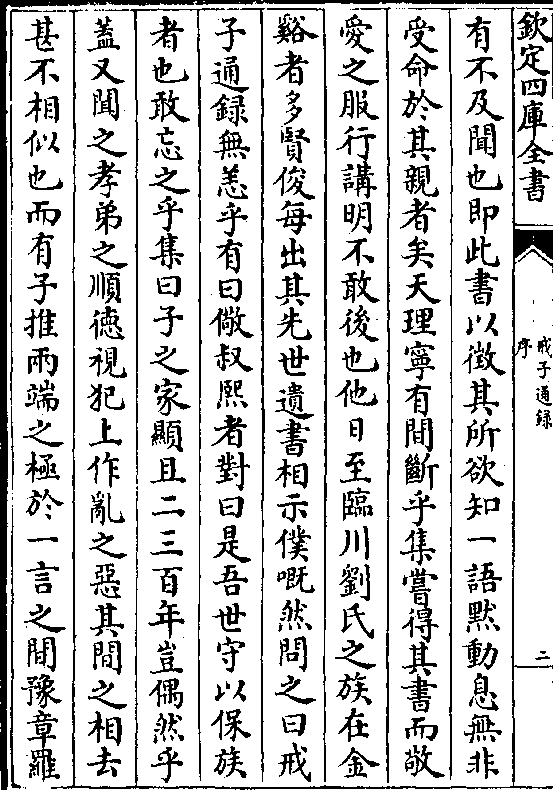 欽定四庫全書
戒子通録
序
二
有不及聞也即此書以徵其所欲知一語黙動息無非
受命於其親者矣天理寧有間斷乎集嘗得其書而敬
愛之服行講明不敢後也他日至臨川劉氏之族在金
谿者多賢俊每出其先世遺書相示僕嘅然問之曰戒
子通録無恙乎有曰儆叔熙者對曰是吾世守以保族
者也敢忘之乎集曰子之家顯且二三百年豈偶然乎
蓋又聞之孝弟之順德視犯上作亂之惡其間之相去
甚不相似也而有子推兩端之極於一言之間豫章羅